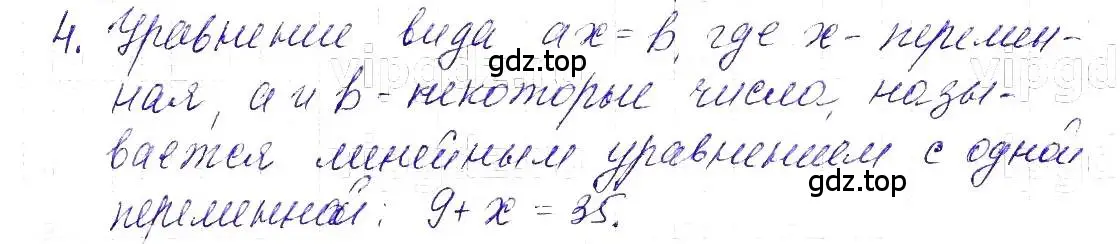 4. Уравнение вида ax = b, где x - перемен-
ная, a и b - некоторые числа, назы-
вается линейным уравнением с одной
переменной: 9 + x = 35.
gdz.top
gdz.top
gdz.top